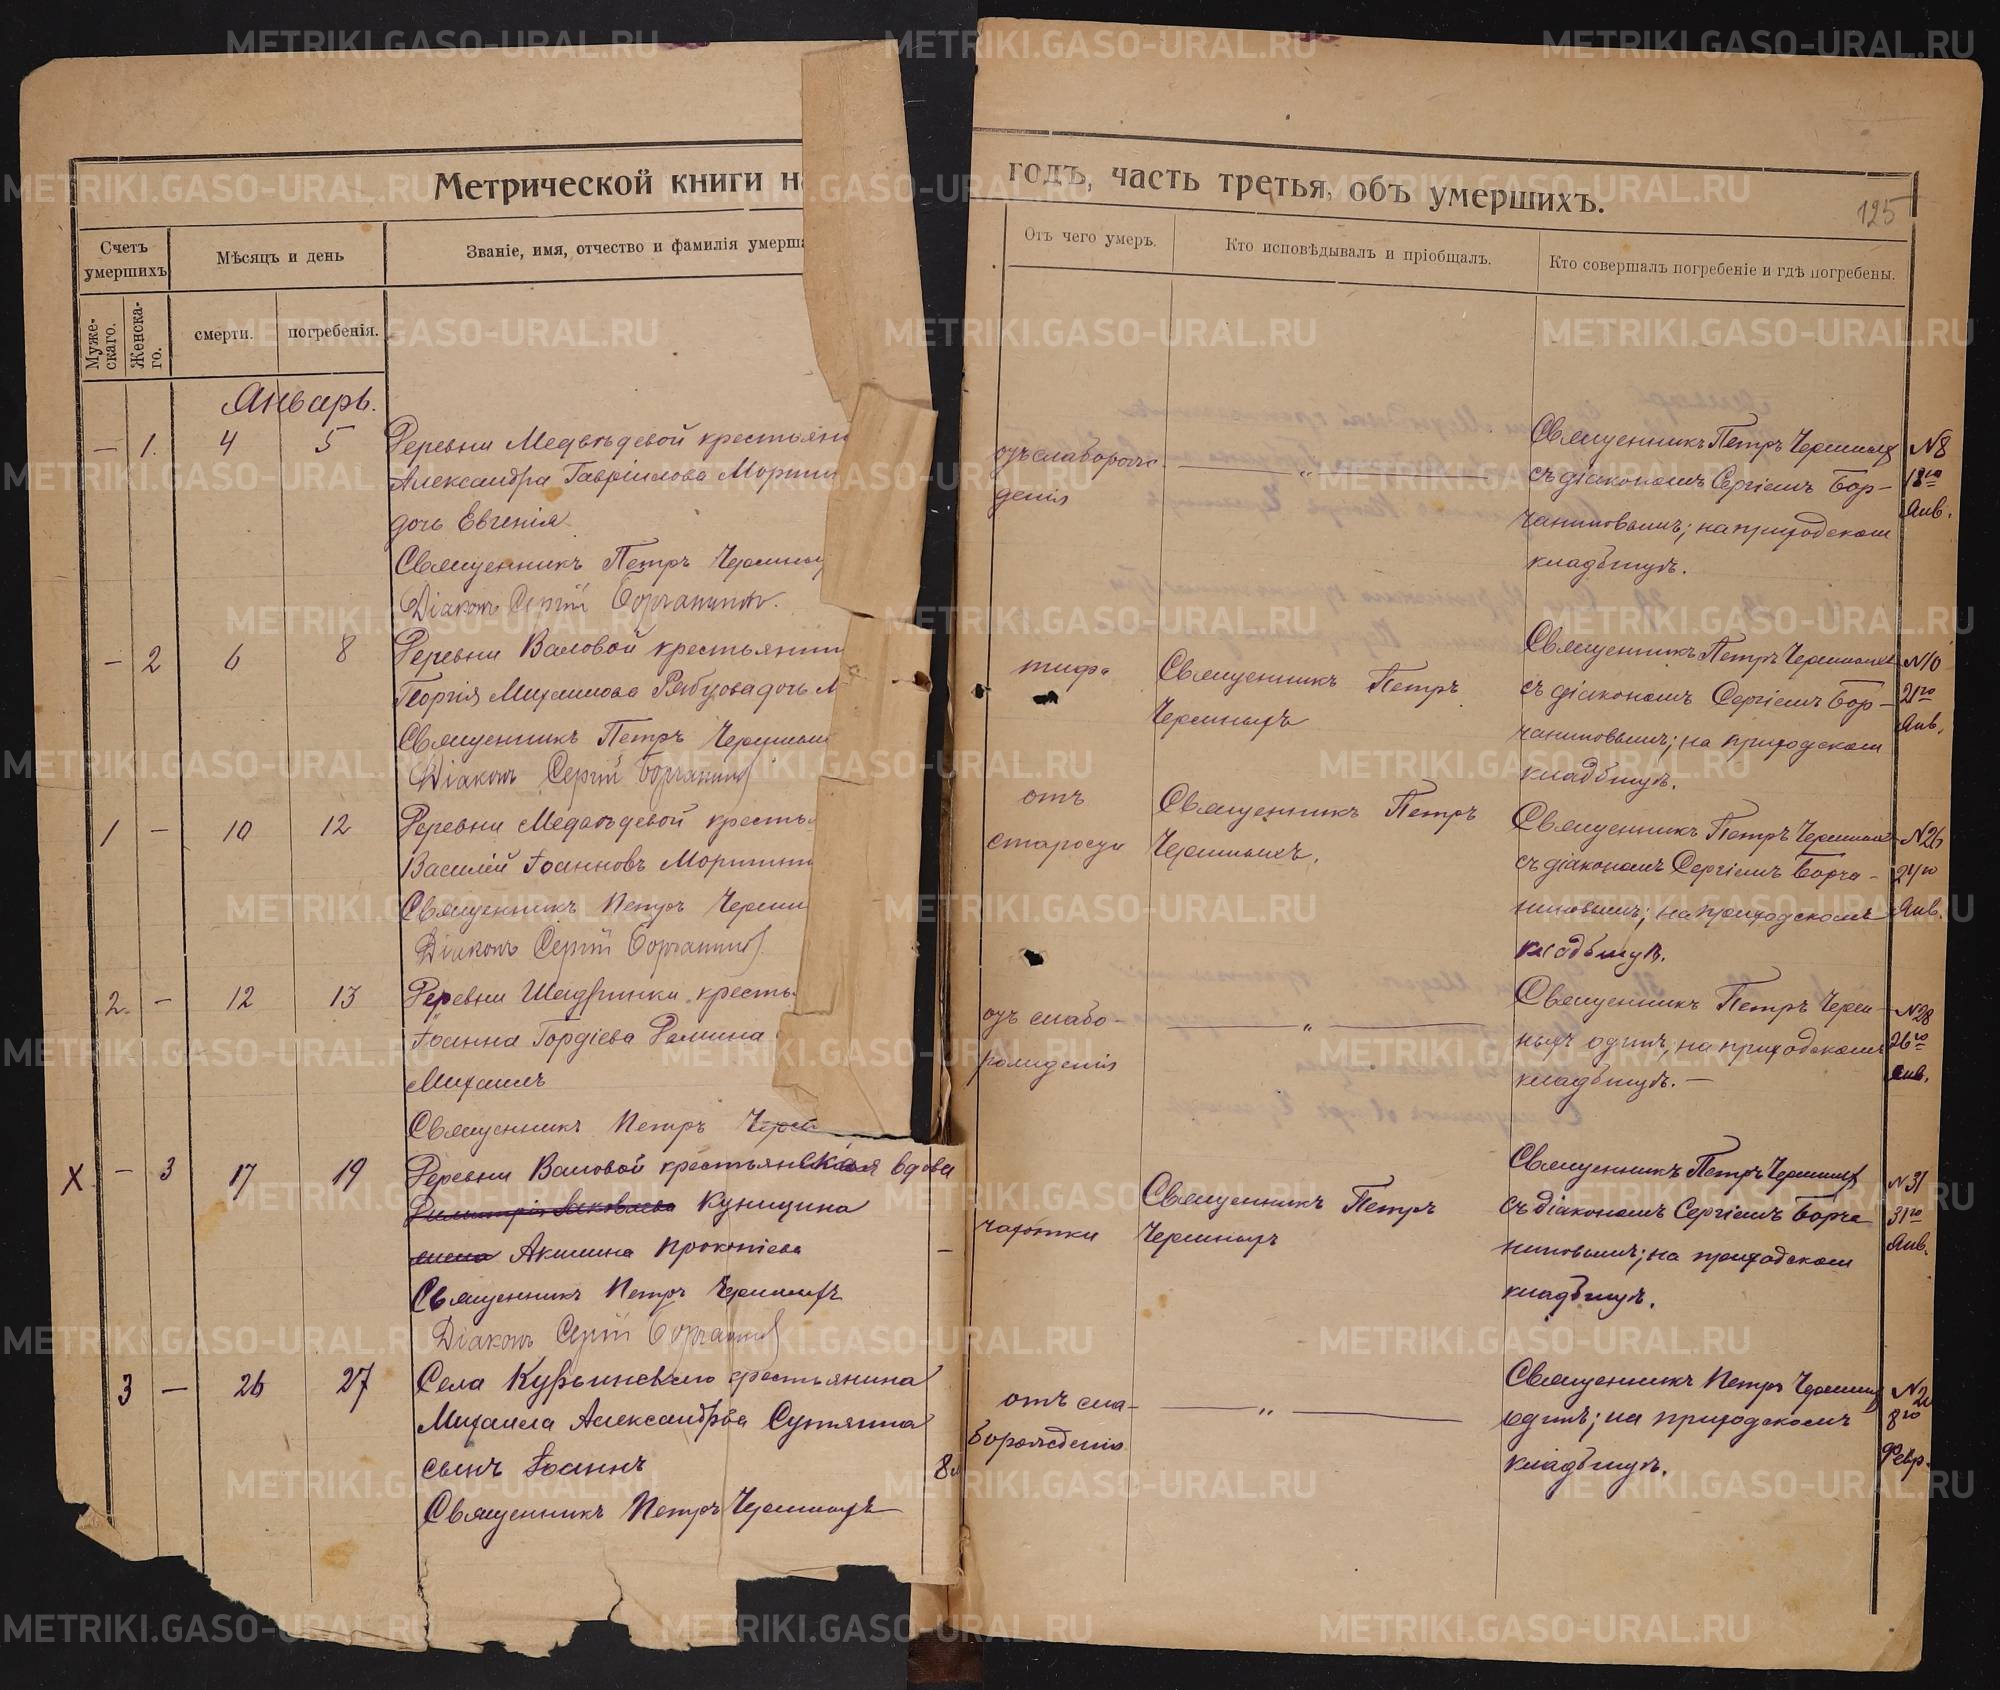 Метрической книги на
годъ, часть третья, объ умершихъ.
125
Счетъ умершихъ
Мѣсяцъ и день
Званіе, имя, отчество и фамилія умерш
Отъ чего умеръ.
Кто исповѣдывалъ и пріобщалъ.
Кто совершалъ погребеніе и гдѣ погребены.
Мужескаго.
Женскаго.
смерти.
погребенія.
Январь.
— 1. 4 5
Деревни Медвѣдевой крестьян
Александра Гавріилова
дочь Евгенія
Священникъ Петръ
Діаконъ Сергій
отъ слаборож
денія
— „ —
Священникъ Петръ
съ діакономъ Сергіемъ Бор-
чаниновымъ; на приходскомъ
кладбищѣ.
№8
18го
Янв.
— 2 6 8
Деревни Валовой крестьянин
Георгія Михаилова дочь М
Священникъ Петръ
Діаконъ Сергій
тифа
Священникъ Петръ
Черемныхъ
Священникъ Петръ
съ діакономъ Сергіемъ Бор-
чаниновымъ; на приходскомъ
кладбищѣ.
№10
21го
Янв.
1 — 10 12
Деревни Медвѣдевой кресть
Василій Іоанновъ
Священникъ Петръ
Діаконъ Сергій
отъ
старости
Священникъ Петръ
Черемныхъ.
Священникъ Петръ
съ діакономъ Сергіемъ Борча-
ниновымъ; на приходскомъ
кладбищѣ.
№26
24го
Янв.
2. — 12 13
Деревни Шадринки кресть
Іоанна Гордіева
Михаилъ
Священникъ Петръ Черем
отъ слабо-
рожденія
— „ —
Священникъ Петръ Черем-
ныхъ одинъ; на приходскомъ
кладбищѣ. —
№28
26го
Янв.
X — 3 17 19
Деревни Валовой крестьянская вдова
Куницина
Акилина Прокопіева —
Священникъ Петръ Черемныхъ
Діаконъ Сергій
чахотки
Священникъ Петръ
Черемныхъ
Священникъ Петръ Черемныхъ
съ діакономъ Сергіемъ Борча
ниновымъ; на приходскомъ
кладбищѣ.
№31
31го
Янв.
3 — 26 27
Села Курьинскаго крестьянина
Михаила Александрова
сынъ Іоаннъ 8
Священникъ Петръ Черемныхъ
отъ сла-
борожденія
— „ —
Священникъ Петръ Черемныхъ
одинъ; на приходскомъ
кладбищѣ.
8го
Февр.
METRIKI.GASO-URAL.RU